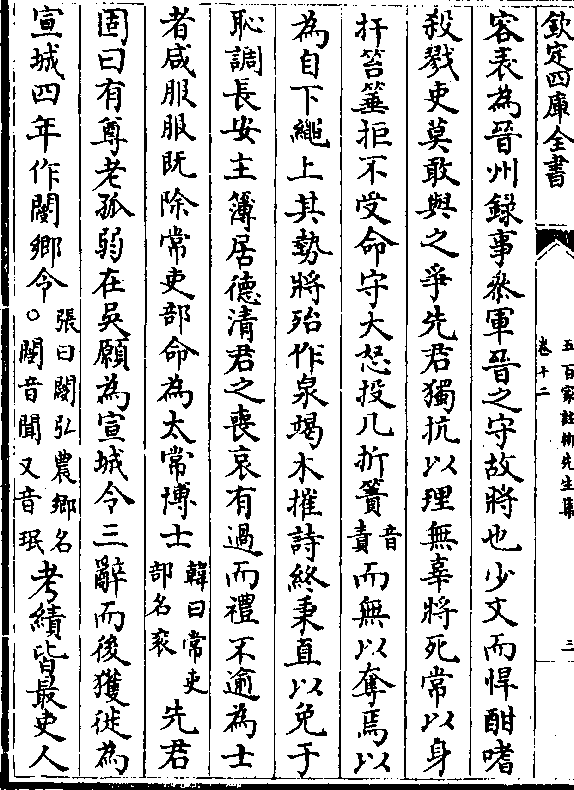 欽定四庫全書
五百家註柳先生集
卷十二
三
容表為晉州録事叅軍晉之守故將也少文而悍酣嗜
殺戮吏莫敢與之爭先君獨抗以理無辜將死常以身
扞笞箠拒不受命守大怒投几折簀音責而無以奪焉以
為自下繩上其勢將殆作泉竭木摧詩終秉直以免于
恥調長安主簿居德清君之喪哀有過而禮不逾為士
者咸服服既除常吏部命為太常博士韓曰常吏部名衮先君
固曰有尊老孤弱在吳願為宣城令三辭而後獲徙為
宣城四年作閿鄉令張曰閿弘農鄉名○閿音聞又音珉考績皆最吏人